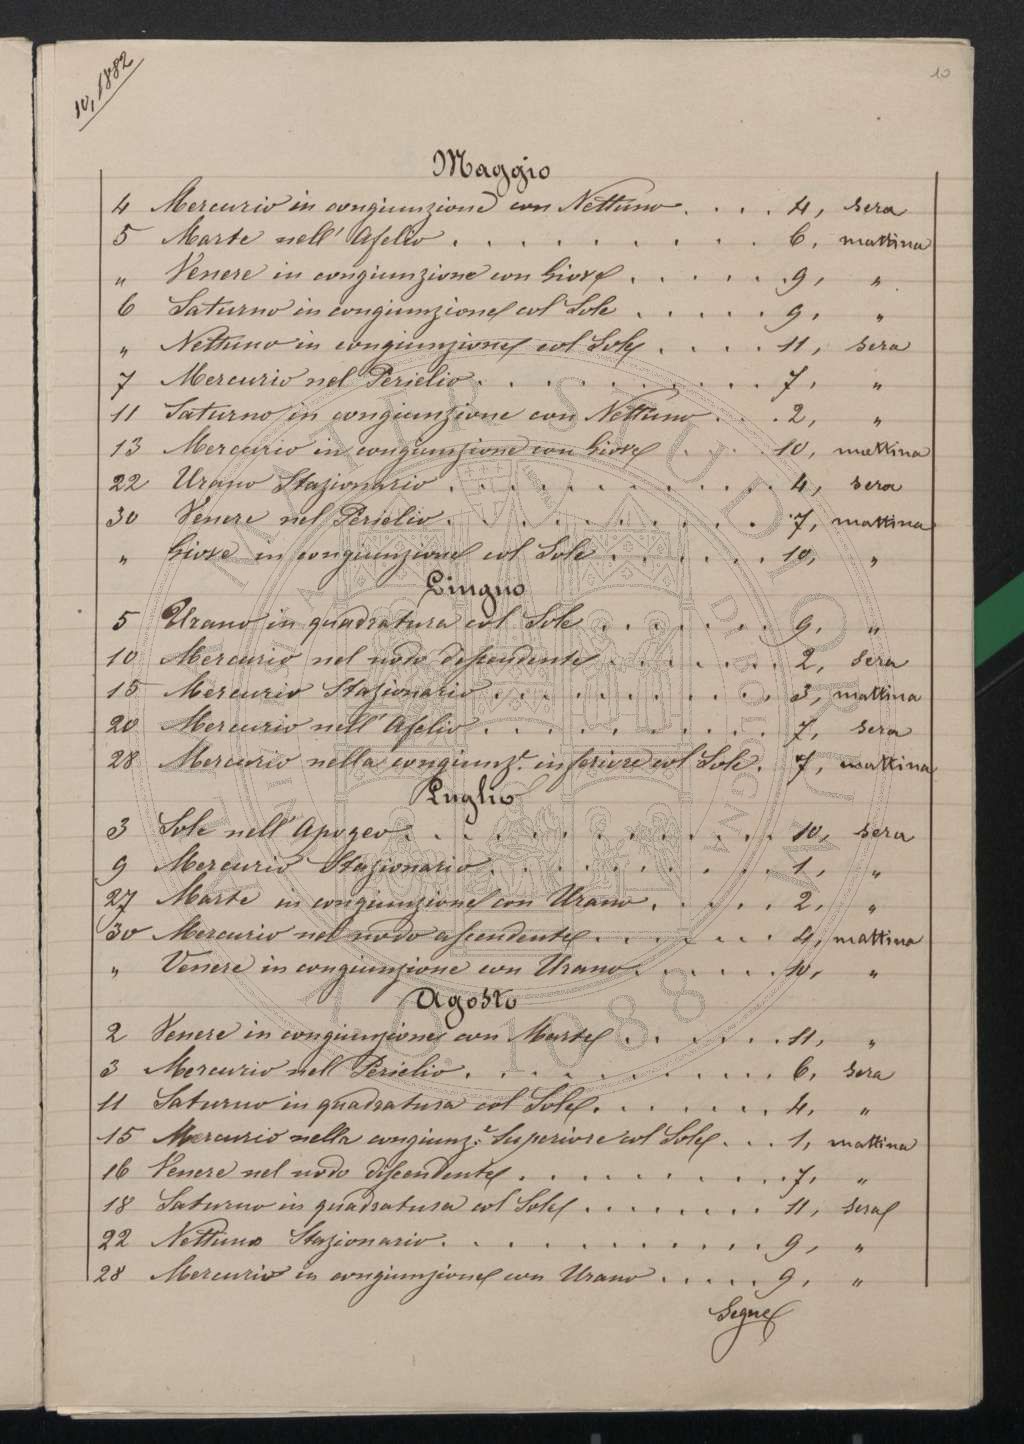 10, 1882
10
Maggio
4 Mercurio in congiunzione con Nettuno . . . . 4, sera
5 Marte nell' Afelio . . . . . . . . . . 6, mattina
" Venere in congiunzione con Giove . . . . . . 9, "
6 Saturno in congiunzione col Sole . . . . . 9, "
" Nettuno in congiunzione col Sole . . . . 11, sera
7 Mercurio nel Perielio . . . . . . . . . . 7, "
11 Saturno in congiunzione con Nettuno . . . 2, "
13 Mercurio in congiunzione con Giove . . . . 10, mattina
22 Urano Stazionario . . . . . . . . . . . 4, sera
30 Venere nel Perielio . . . . . . . . . . 7, mattina
" Giove in congiunzione col Sole . . . . . . 10, "
Giugno
5 Urano in quadratura col Sole . . . . . . . 9, "
10 Mercurio nel nodo discendente . . . . . . . 2, sera
15 Mercurio Stazionario . . . . . . . . . . 3, mattina
20 Mercurio nell' Afelio . . . . . . . . . . 7, sera
28 Mercurio nella congiunz.e inferiore col Sole . 7, mattina
Luglio
3 Sole nell' Apogeo . . . . . . . . . . . . 10, sera
9 Mercurio Stazionario . . . . . . . . . . 1, "
27 Marte in congiunzione con Urano . . . . . 2, "
30 Mercurio nel nodo ascendente . . . . . . . 4, mattina
" Venere in congiunzione con Urano . . . . . . 10, "
Agosto
2 Venere in congiunzione con Marte . . . . . . 11, "
3 Mercurio nell Perielio . . . . . . . . . . 6, sera
11 Saturno in quadratura col Sole . . . . . . . 4, "
15 Mercurio nella congiunz.e Superiore col Sole . . . 1, mattina
16 Venere nel nodo discendente . . . . . . . . . . 7, "
18 Saturno in quadratura col Sole . . . . . . . . 11, sera
22 Nettuno Stazionario . . . . . . . . . . . . 9, "
28 Mercurio in congiunzione con Urano . . . . . 9, "
Segue